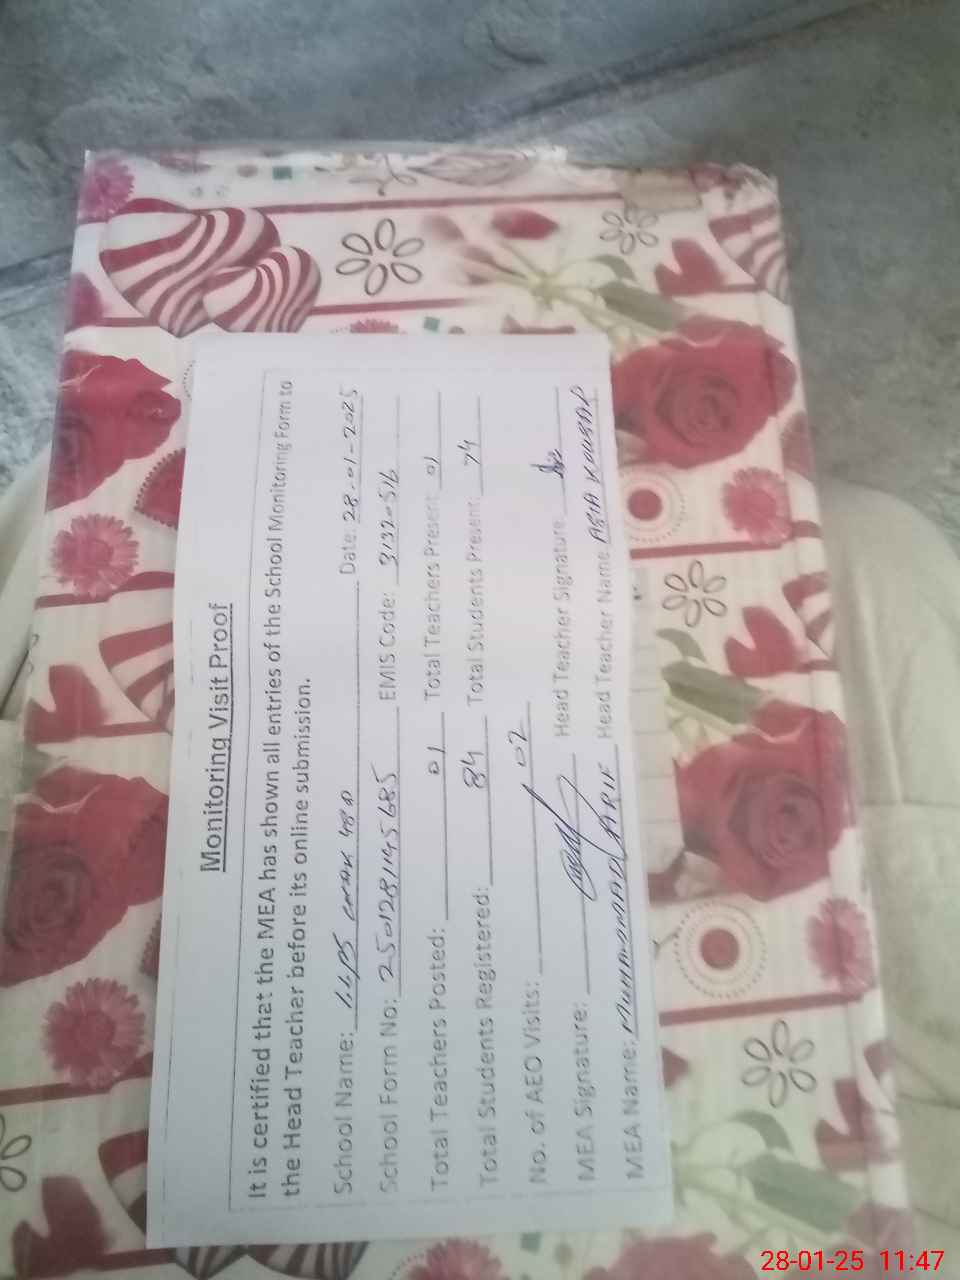 Monitoring Visit Proof
It is certified that the MEA has shown all entries of the School Monitoring Form to
the Head Teacher before its online submission.
School Name: 48 D Date: 28-01-2025
School Form No: 2501281145685 EMIS Code: 31320516
Total Teachers Posted: 01 Total Teachers Present: 01
Total Students Registered: 84 Total Students Present: 74
No. of AEO Visits: 02
MEA Signature: Head Teacher Signature
MEA Name: MUHAMMAD ARIF Head Teacher Name: ASIA KOUSAR
28-01-25 11:47